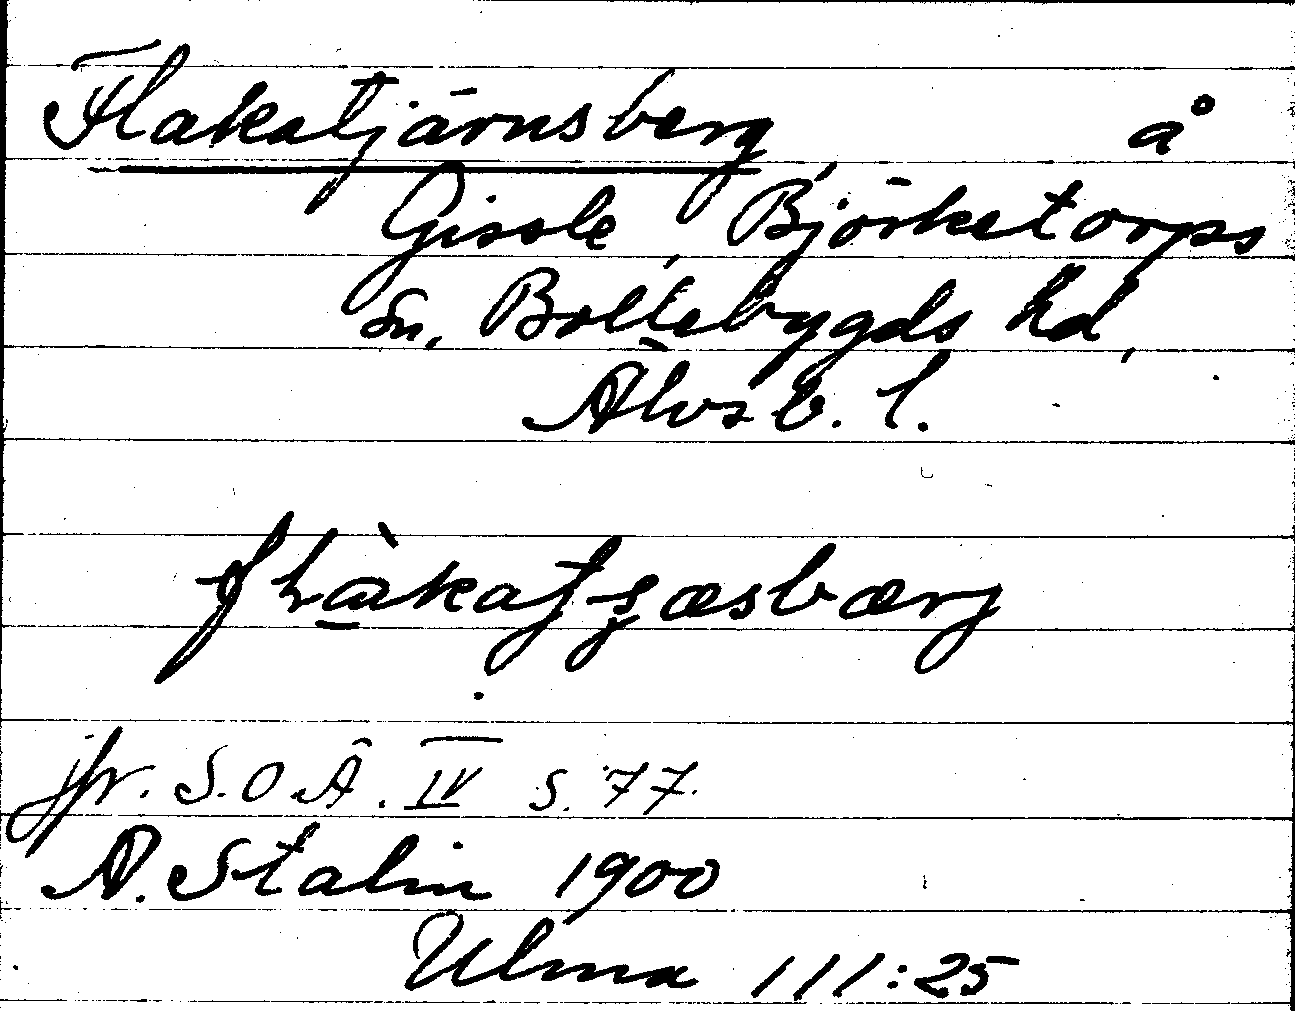 Flakatjärnsberg, å
Gissle, Björketorps
sn, Bollebygds hd,
Älvsb. l.
jfr. S.O.Ä. IV s. 77.
A. Stalin 1900
Ulma 111:25